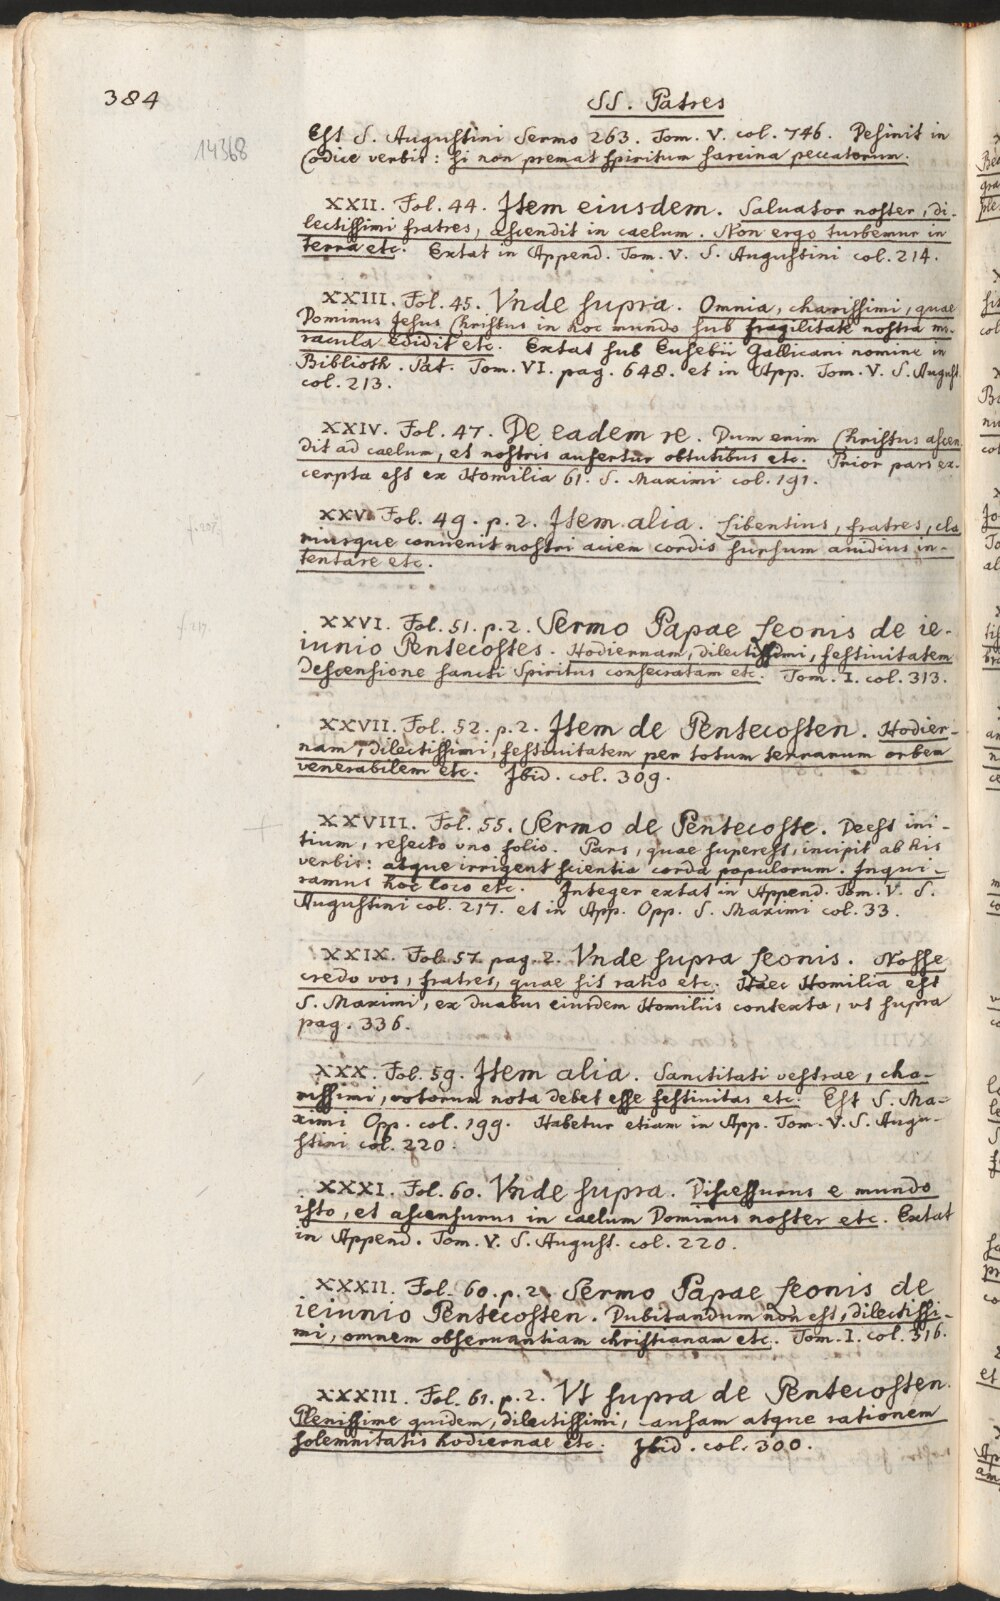 384
SS. Patres
14368
Est S. Augustini Sermo 263. Tom. V. col. 746. Desinit in
Codice verbis: si non premat spiritum sarcina peccatorum.
XXII. Fol. 44. Item eiusdem. Saluator noster, di-
lectissimi fratres, ascendit in caelum. Non ergo turbemur in
terra etc. Extat in Append. Tom. V. S. Augustini col. 214.
XXIII. Fol. 45. Vnde supra. Omnia, charissimi, quae
Dominus Jesus Christus in hoc mundo sub fragilitate nostra mi-
racula edidit etc. Extat sub Eusebii Gallicani nomine in
Biblioth. Pat. Tom. VI. pag. 648. et in App. Tom. V. S. August.
col. 213.
XXIV. Fol. 47. De eadem re. Dum enim Christus ascen
dit ad caelum, et nostris aufertur obtutibus etc. Prior pars ex-
cerpta est ex Homilia 61. S. Maximi col. 191.
XXV. Fol. 49. p. 2. Item alia. Libentius, fratres, cla
riusque conuenit nostri aciem cordis sursum auidius in-
tentare etc.
f. 217.
XXVI. Fol. 51. p. 2. Sermo Papae Leonis de ie-
iunio Pentecostes. Hodiernam, dilectissimi, festiuitatem
Descensione sancti Spiritus consecratam etc. Tom. I. col. 313.
XXVII. Fol. 52. p. 2. Item de Pentecosten. Hodier-
nam, dilectissimi, festiuitatem per totum terrarum orbem
venerabilem etc. Ibid. col. 309.
XXVIII. Fol. 55. Sermo de Pentecoste. Deest ini-
tium, resecto vno folio. Pars, quae superest, incipit ab his
verbis: atque irrigent scientia corda populorum. Inqui-
ramus hoc loco etc. Integer extat in Append. Tom. V. S.
Augustini col. 217. et in App. Opp. S. Maximi col. 33.
XXIX. Fol. 57. pag. 2. Vnde supra Leonis. Nosse
credo vos, fratres, quae sit ratio etc. Haec Homilia est
S. Maximi, ex duabus eiusdem Homiliis contexta, vt supra
pag. 336.
XXX. Fol. 59. Item alia. Sanctitati vestrae, cha-
rissimi, votorum nota debet esse festiuitas etc. Est S. Ma-
ximi Opp. col. 199. Habetur etiam in App. Tom. V. S. Augu-
stini col. 220.
XXXI. Fol. 60. Vnde supra. Discessurus e mundo
isto, et ascensurus in caelum Dominus noster etc. Extat
in Append. Tom. V. S. August. col. 220.
XXXII. Fol. 60. p. 2. Sermo Papae Leonis de
ieiunio Pentecosten. Dubitandum non est, dilectissi-
mi, omnem obseruantiam christianam etc. Tom. I. col. 316.
XXXIII. Fol. 61. p. 2. Vt supra de Pentecosten.
Plenissime quidem, dilectissimi, causam atque rationem
solemnitatis hodiernae etc. Ibid. col. 300.